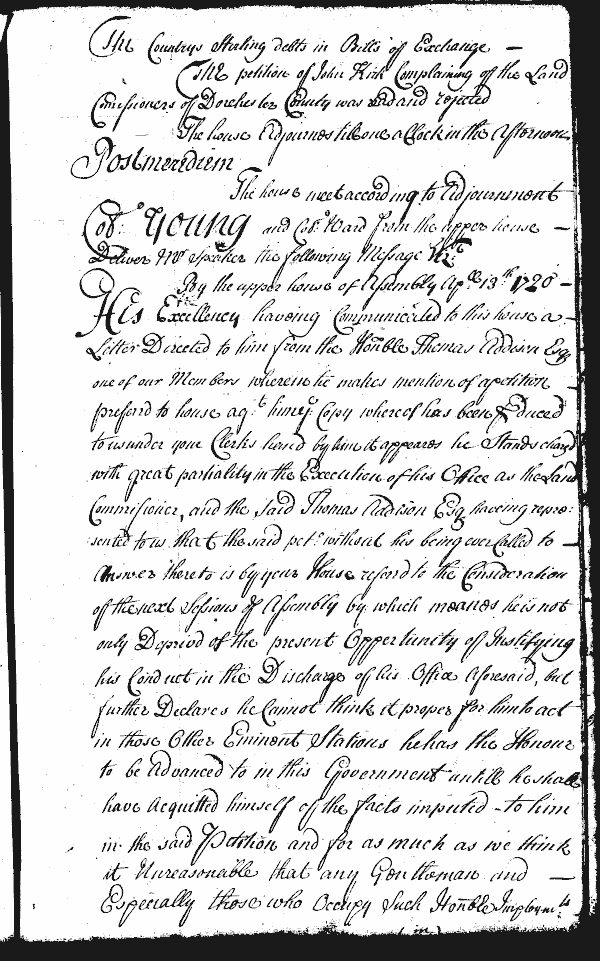 The Countrys Sterling debts in Bills of Exchange —
The petition of John Kirk Complaining of the Land
Comissioners of Dorchester County was read and rejected
The house Adjournes till one a Clock in the Afternoon
Postmerediem
The house meet according to Adjournment
Coll. Young and Coll. Ward from the upper house —
Deliver Mr Speaker the following Message Vizt
By the upper house of Assembly Apll 13th 1720 —
His Excellency haveing Communicated to this house a —
Letter Directed to him from the Honble Thomas Addison Esq
one of our Members wherein he makes mention of a petition —
preferd to house agt him ye Copy whereof has been produced
to us under your Clerks hand by him it appeares he Stands chargd
with great partiality in the Execution of his Office as the Land
Commissioner, and the said Thomas Addison Esq haveing repre:
sented to us that the said pet. without his being ever Called to —
Answer thereto is by your House referd to the Consideration
of the next Sessions of Assembly by which meanes he is not
only Deprivd of the present Oppertunity of Justifying
his Conduct in the Discharge of his Office aforesaid, but
further Declares he Cannot think it proper for him to act
in those Other Eminent Stations he has the Honour
to be Advanced to in this Government untill he shall
have Acquitted himself of the facts imputed to him
in the said Petition and for as much as we think
it Unreasonable that any Gentleman and —
Especially those who Occupy Such Honble Imploymts